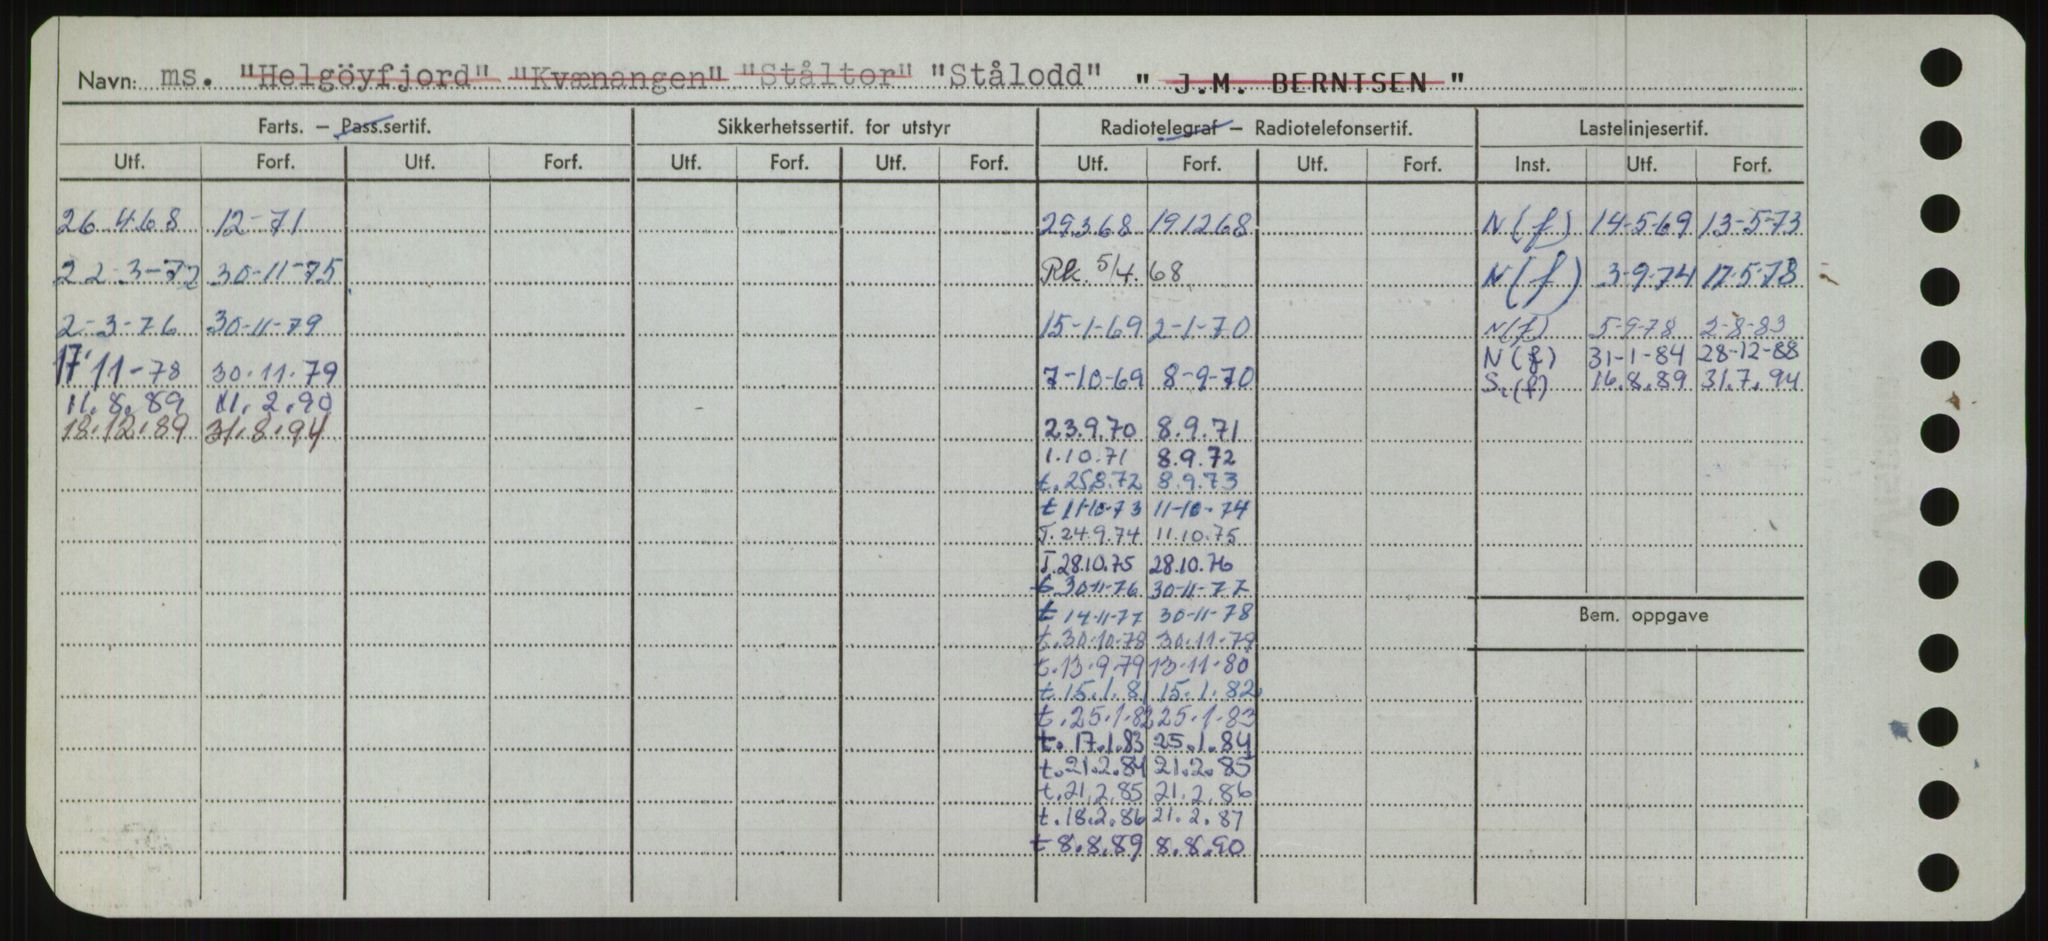 Navn: ms. "Helgöyfjord" "Kvænangen" "Ståltor" "Stålodd" " J.M. BERNTSEN "
Farts. – Pass.sertif. Sikkerhetssertif. for utstyr Radiotelegraf – Radiotelefonsertif. Lastelinjesertif.
Utf. Forf. Utf. Forf. Utf. Forf. Utf. Forf. Utf. Forf. Utf. Forf. Inst. Utf. Forf.
26 4.68 12-71 29.3.68 19.12.68 N (f) 14-5-69 13-5-73
22-3-72 30-11-75 Rk. 5/4. 68 N (f) 3-9-74 17-5-78
2-3-76 30-11-79 15-1-69 2-1-70 N(f) 5-9-78 2-8-83
17-11-78 30.11.79 7-10-69 8-9-70 N (f) 31-1-84 28-12-88
11.8.89 11.2.90 S.(f) 16.8.89 31.7.94
18.12.89 31.8.94 23.9.70 8.9.71
1.10.71 8.9.72
t.25.8.72 8.9.73
t 11-10-73 11-10-74
T.24.9.74 11.10.75
T.28.10.75 28.10.76
t 30-11-76 30-11-77
t 14-11-77 30-11-78
t.30-10-78 30.11-79
t.13.9.79 13-11-80
t.15.1.81 15.1.82
t.25.1.82 25.1.83
t. 17.1.83 25.1.84
t.21.2.84 21.2.85
t.21.2.85 21.2.86
t.18.2.86 21.2.87
t 8.8.89 8.8.90
Bem. oppgave